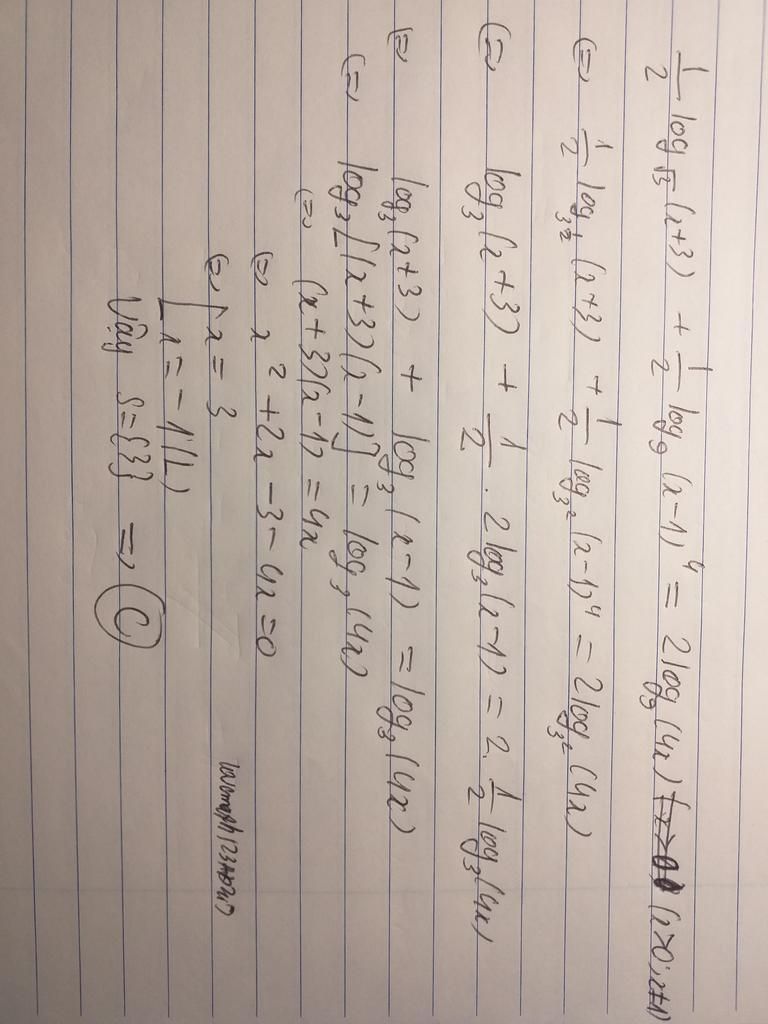 1/2 log_√3 (x+3) + 1/2 log_9 (x-1)^4 = 2log_9 (4x) (x>0; x≠1)
(=) 1/2 log_{3^{1/2}} (x+3) + 1/2 log_{3^2} (x-1)^4 = 2log_{3^2} (4x)
(=) log_3 (x+3) + 1/2 . 2log_3 (x-1) = 2. 1/2 log_3 (4x)
(=) log_3 (x+3) + log_3 (x-1) = log_3 (4x)
(=) log_3 [(x+3)(x-1)] = log_3 (4x)
(=) (x+3)(x-1) = 4x
(=) x^2 + 2x - 3 - 4x = 0
(=) [ x = 3
x = -1 (L)
Vậy S={3} => C